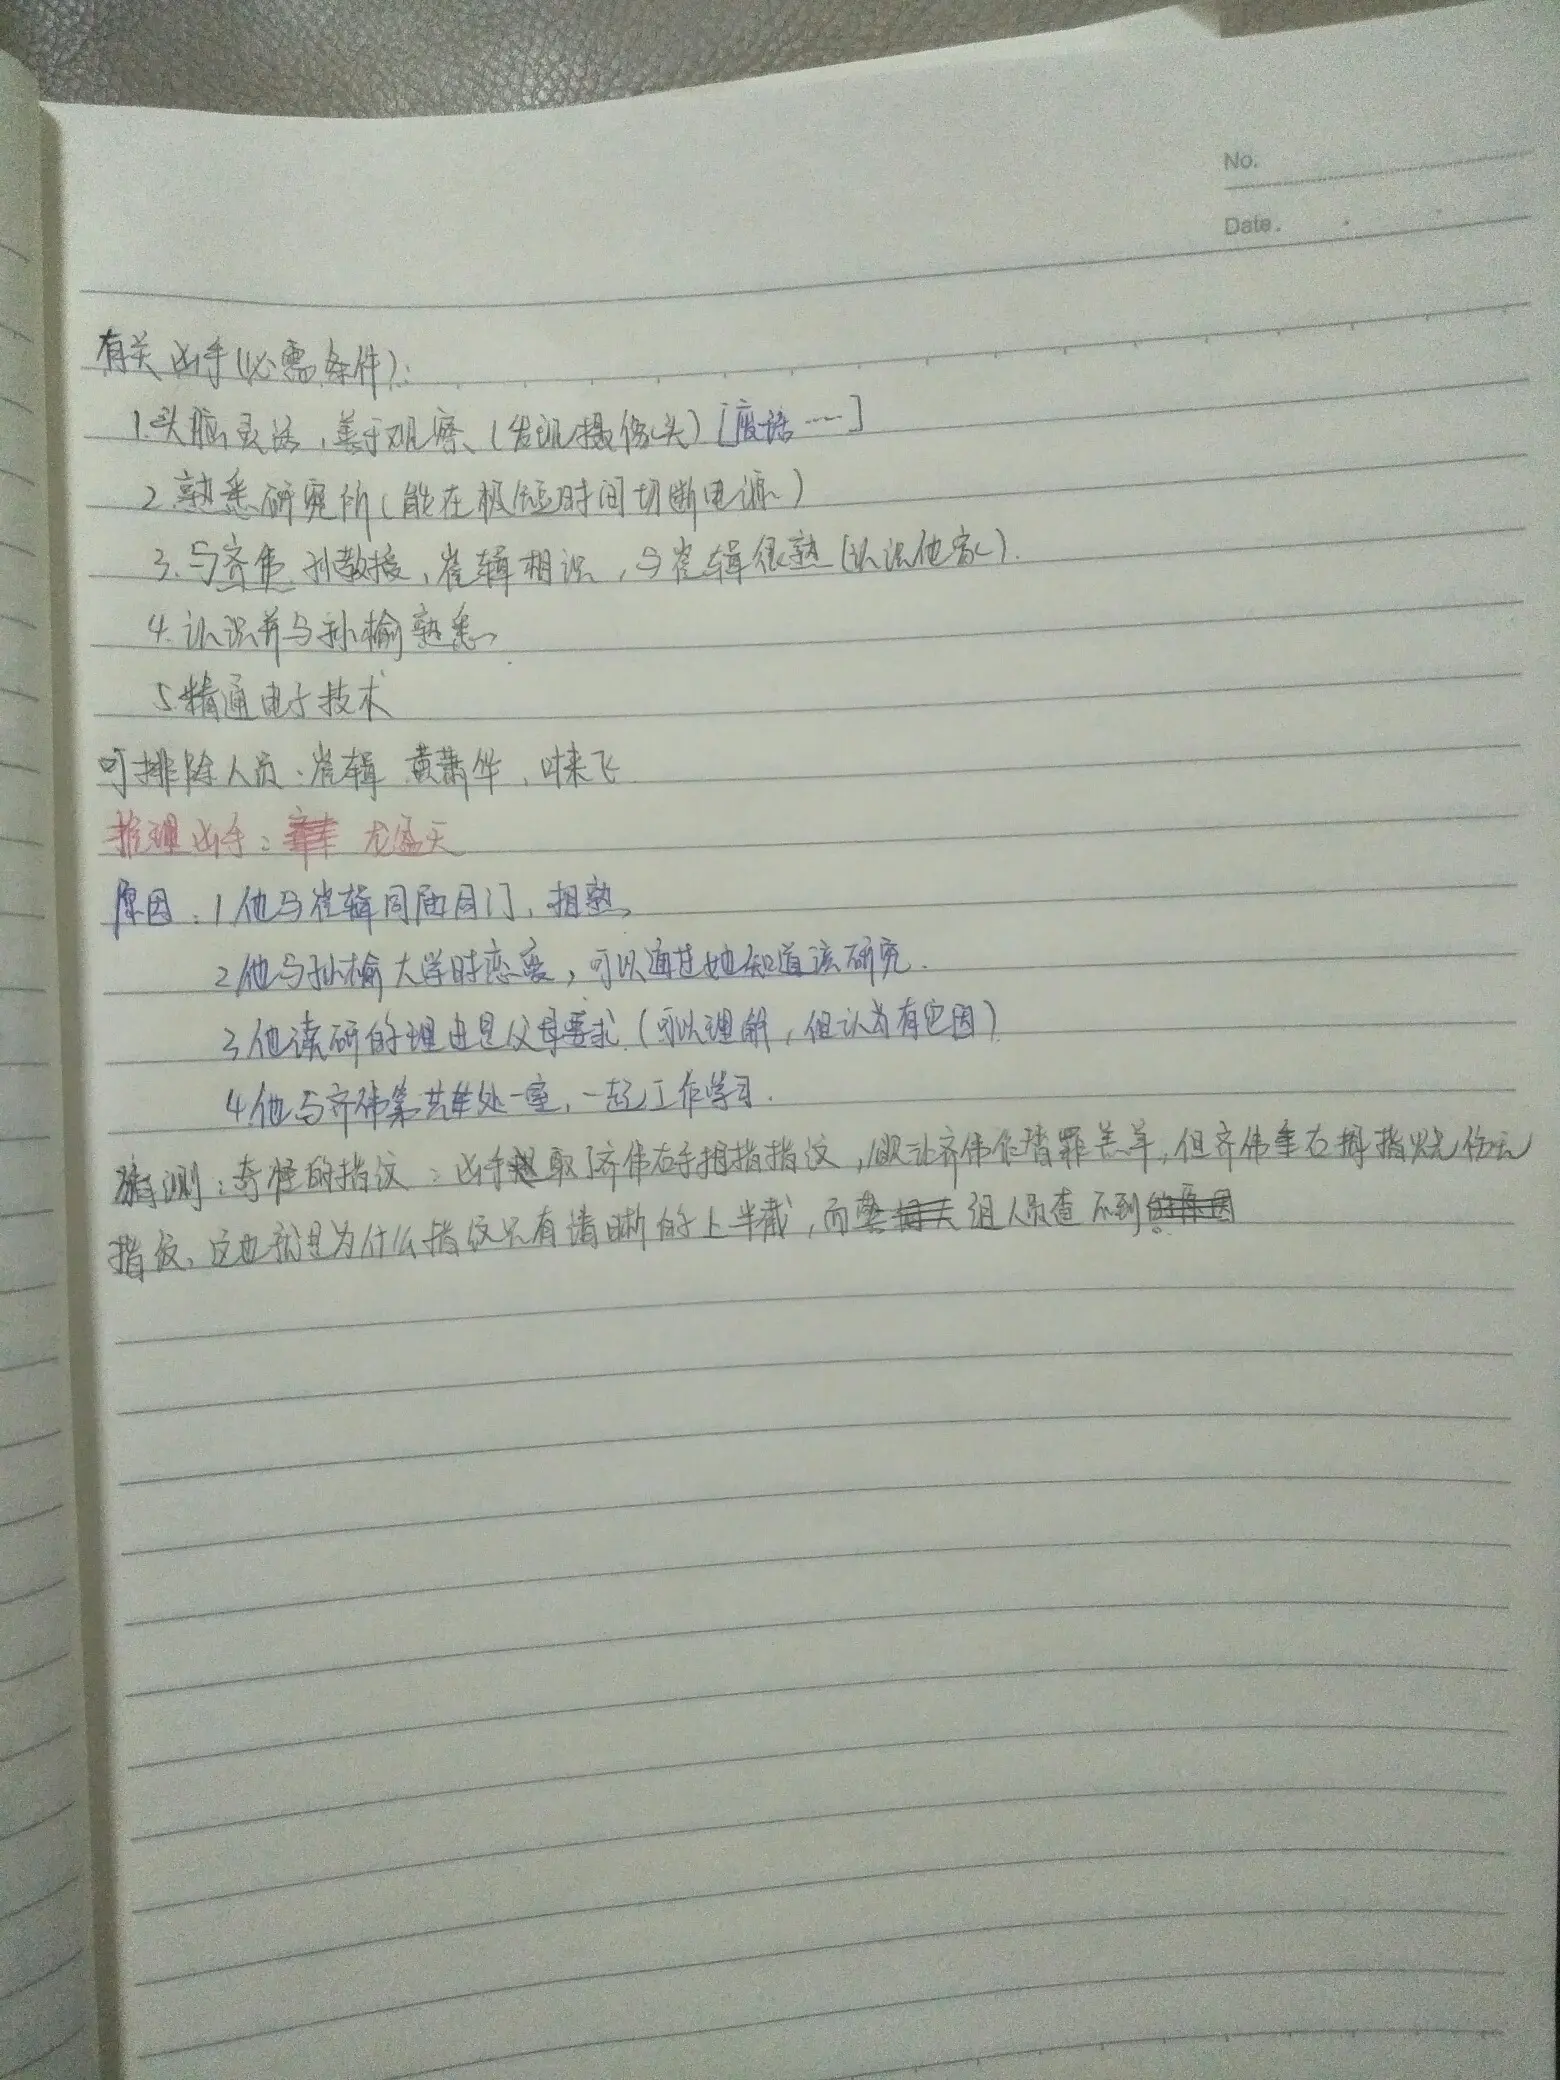 No.
Date.
有关凶手(必需条件):
1.头脑灵活,善于观察、(发现摄像头)[废话……]
2.熟悉研究所(能在极短时间切断电源)
3.与齐伟、孙教授、崔辑相识,与崔辑很熟(认识他家).
4.认识并与孙榆熟悉、
5.精通电子技术
可排除人员:崔辑 黄萧华、叶来飞
推理凶手: 龙盛天
原因:1他与崔辑同届同门,相熟,
2他与孙榆大学时恋爱,可以通过她知道该研究.
3他读研的理由是父母要求(可以理解,但认为有它因)
4.他与齐伟第共处一室,一起工作学习.
猜测:奇怪的指纹:凶手取了齐伟右手拇指指纹,欲让齐伟做替罪羔羊,但齐伟右拇指烧伤无
指纹,这也就是为什么指纹只有清晰的上半截,而 组人员查不到。